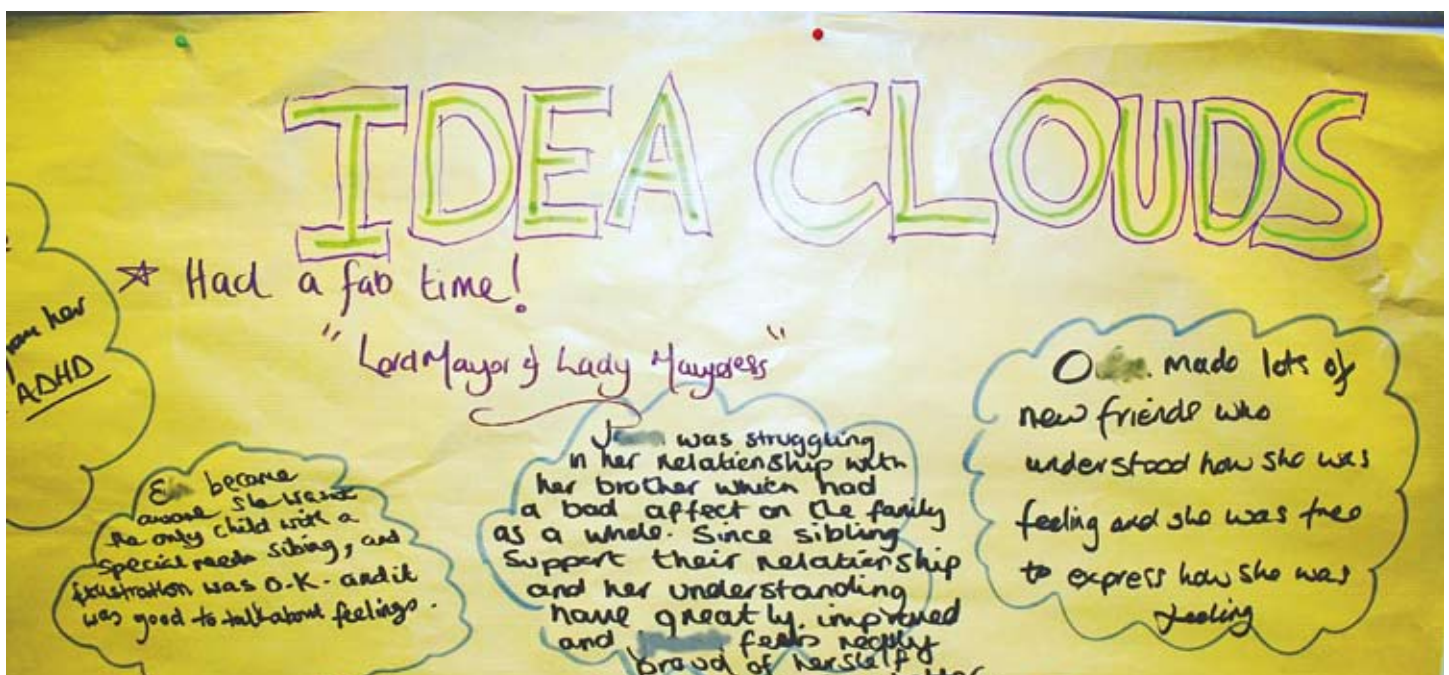 IDEA CLOUDS
☆ Had a fab time!
"Lord Mayor & Lady Mayoress"
her
ADHD
became
aware she wasnt
the only child with a
special needs sibing, and
frustration was O.K. and it
was good to talk about feelings.
was struggling
in her relationship with
her brother which had
a bad affect on the family
as a whole. Since sibling
support their relationship
and her understanding
have greatly improved
and feels really
proud of herself
O made lots of
new friends who
understood how she was
feeling and she was free
to express how she was
feeling